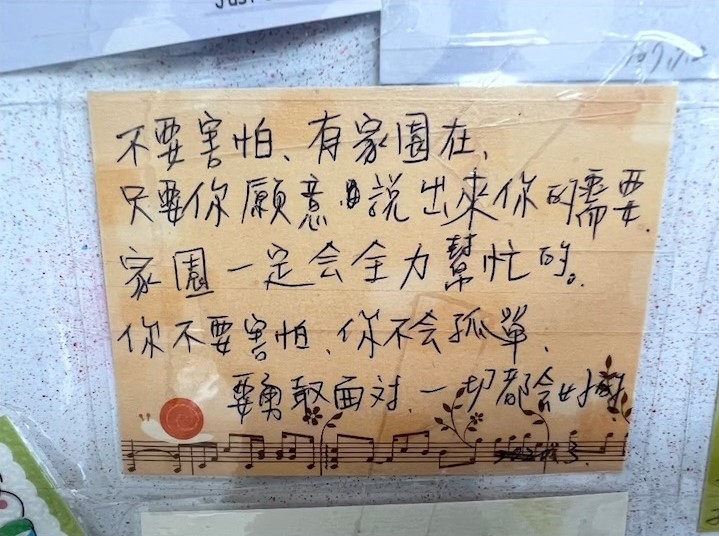 不要害怕、有家園在、
只要你願意說出來你的需要.
家園一定会全力幫忙的。
你不要害怕、你不会孤單、
要勇敢面对、一切都会好的